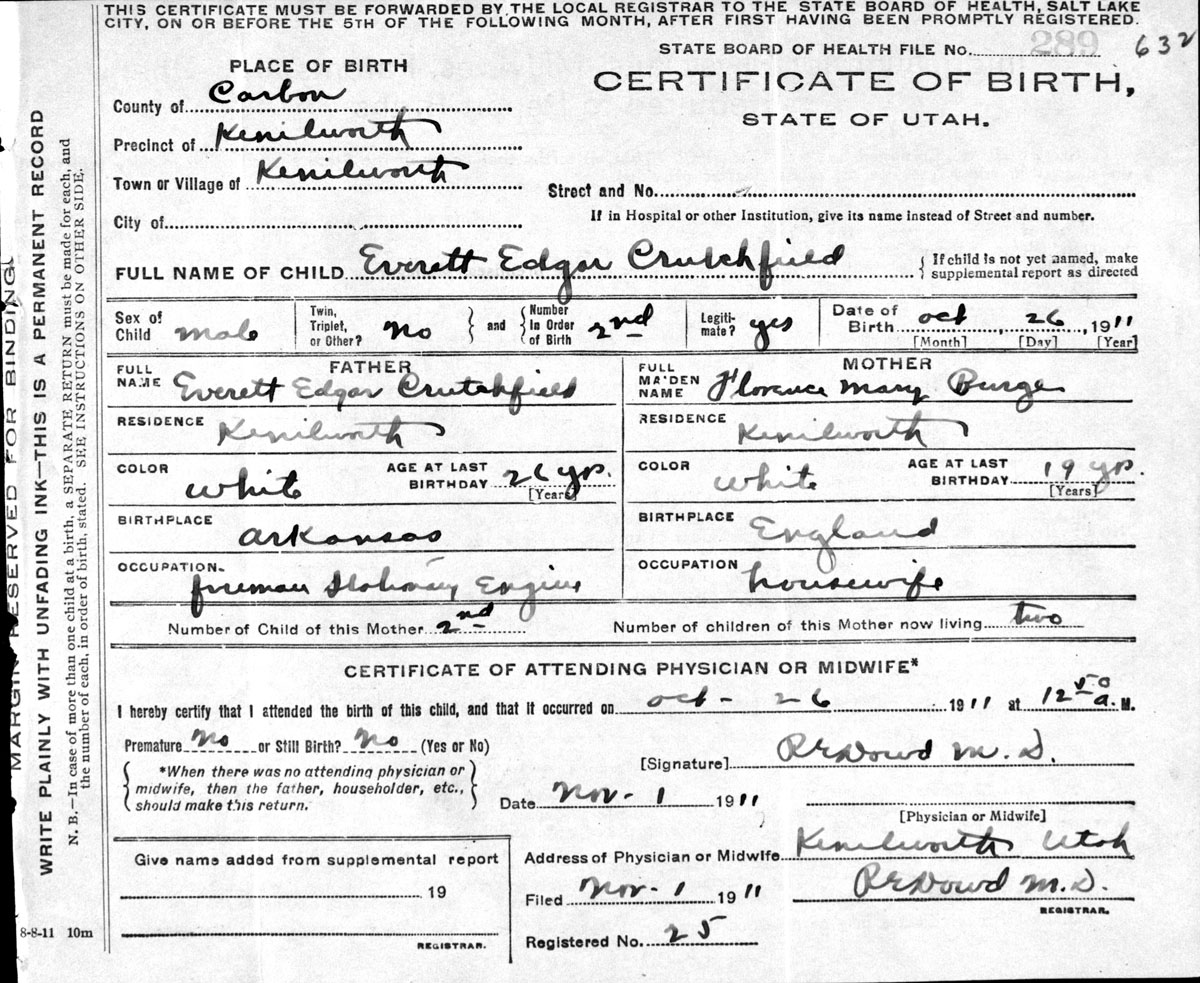 THIS CERTIFICATE MUST BE FORWARDED BY THE LOCAL REGISTRAR TO THE STATE BOARD OF HEALTH, SALT LAKE
CITY, ON OR BEFORE THE 5TH OF THE FOLLOWING MONTH, AFTER FIRST HAVING BEEN PROMPTLY REGISTERED.
STATE BOARD OF HEALTH FILE No. 289 632
PLACE OF BIRTH
CERTIFICATE OF BIRTH,
STATE OF UTAH.
County of Carbon
Precinct of Kenilworth
Town or Village of Kenilworth
Street and No.
City of
If in Hospital or other Institution, give its name instead of Street and number.
FULL NAME OF CHILD Everett Edgar Crutchfield
{ If child is not yet named, make
supplemental report as directed
Sex of Child male
Twin, Triplet, or Other? No } and { Number In Order of Birth 2nd
Legiti-mate? yes
Date of Birth Oct, 26, 1911
[Month] [Day] [Year]
FATHER
FULL NAME Everett Edgar Crutchfield
RESIDENCE Kenilworth
COLOR white AGE AT LAST BIRTHDAY 26 yrs.
[Years]
BIRTHPLACE Arkansas
OCCUPATION fireman Engine
MOTHER
FULL MAIDEN NAME Florence Mary Burge
RESIDENCE Kenilworth
COLOR white AGE AT LAST BIRTHDAY 19 yrs.
[Years]
BIRTHPLACE England
OCCUPATION housewife
Number of Child of this Mother 2nd Number of children of this Mother now living two
CERTIFICATE OF ATTENDING PHYSICIAN OR MIDWIFE*
I hereby certify that I attended the birth of this child, and that it occurred on Oct - 26 1911 at 12 50 a. M.
Premature No or Still Birth? No (Yes or No)
[Signature] Dowd M. D.
{ *When there was no attending physician or
midwife, then the father, householder, etc.,
should make this return. }
Date Nov - 1 1911
[Physician or Midwife]
Address of Physician or Midwife Kenilworth Utah
Give name added from supplemental report
19
REGISTRAR.
Filed Nov - 1 1911
Dowd M. D.
REGISTRAR.
Registered No. 25
8-8-11 10m
MARGIN RESERVED FOR BINDING
WRITE PLAINLY WITH UNFADING INK—THIS IS A PERMANENT RECORD
N. B.—In case of more than one child at a birth, a SEPARATE RETURN must be made for each, and
the number of each, in order of birth, stated. SEE INSTRUCTIONS ON OTHER SIDE.